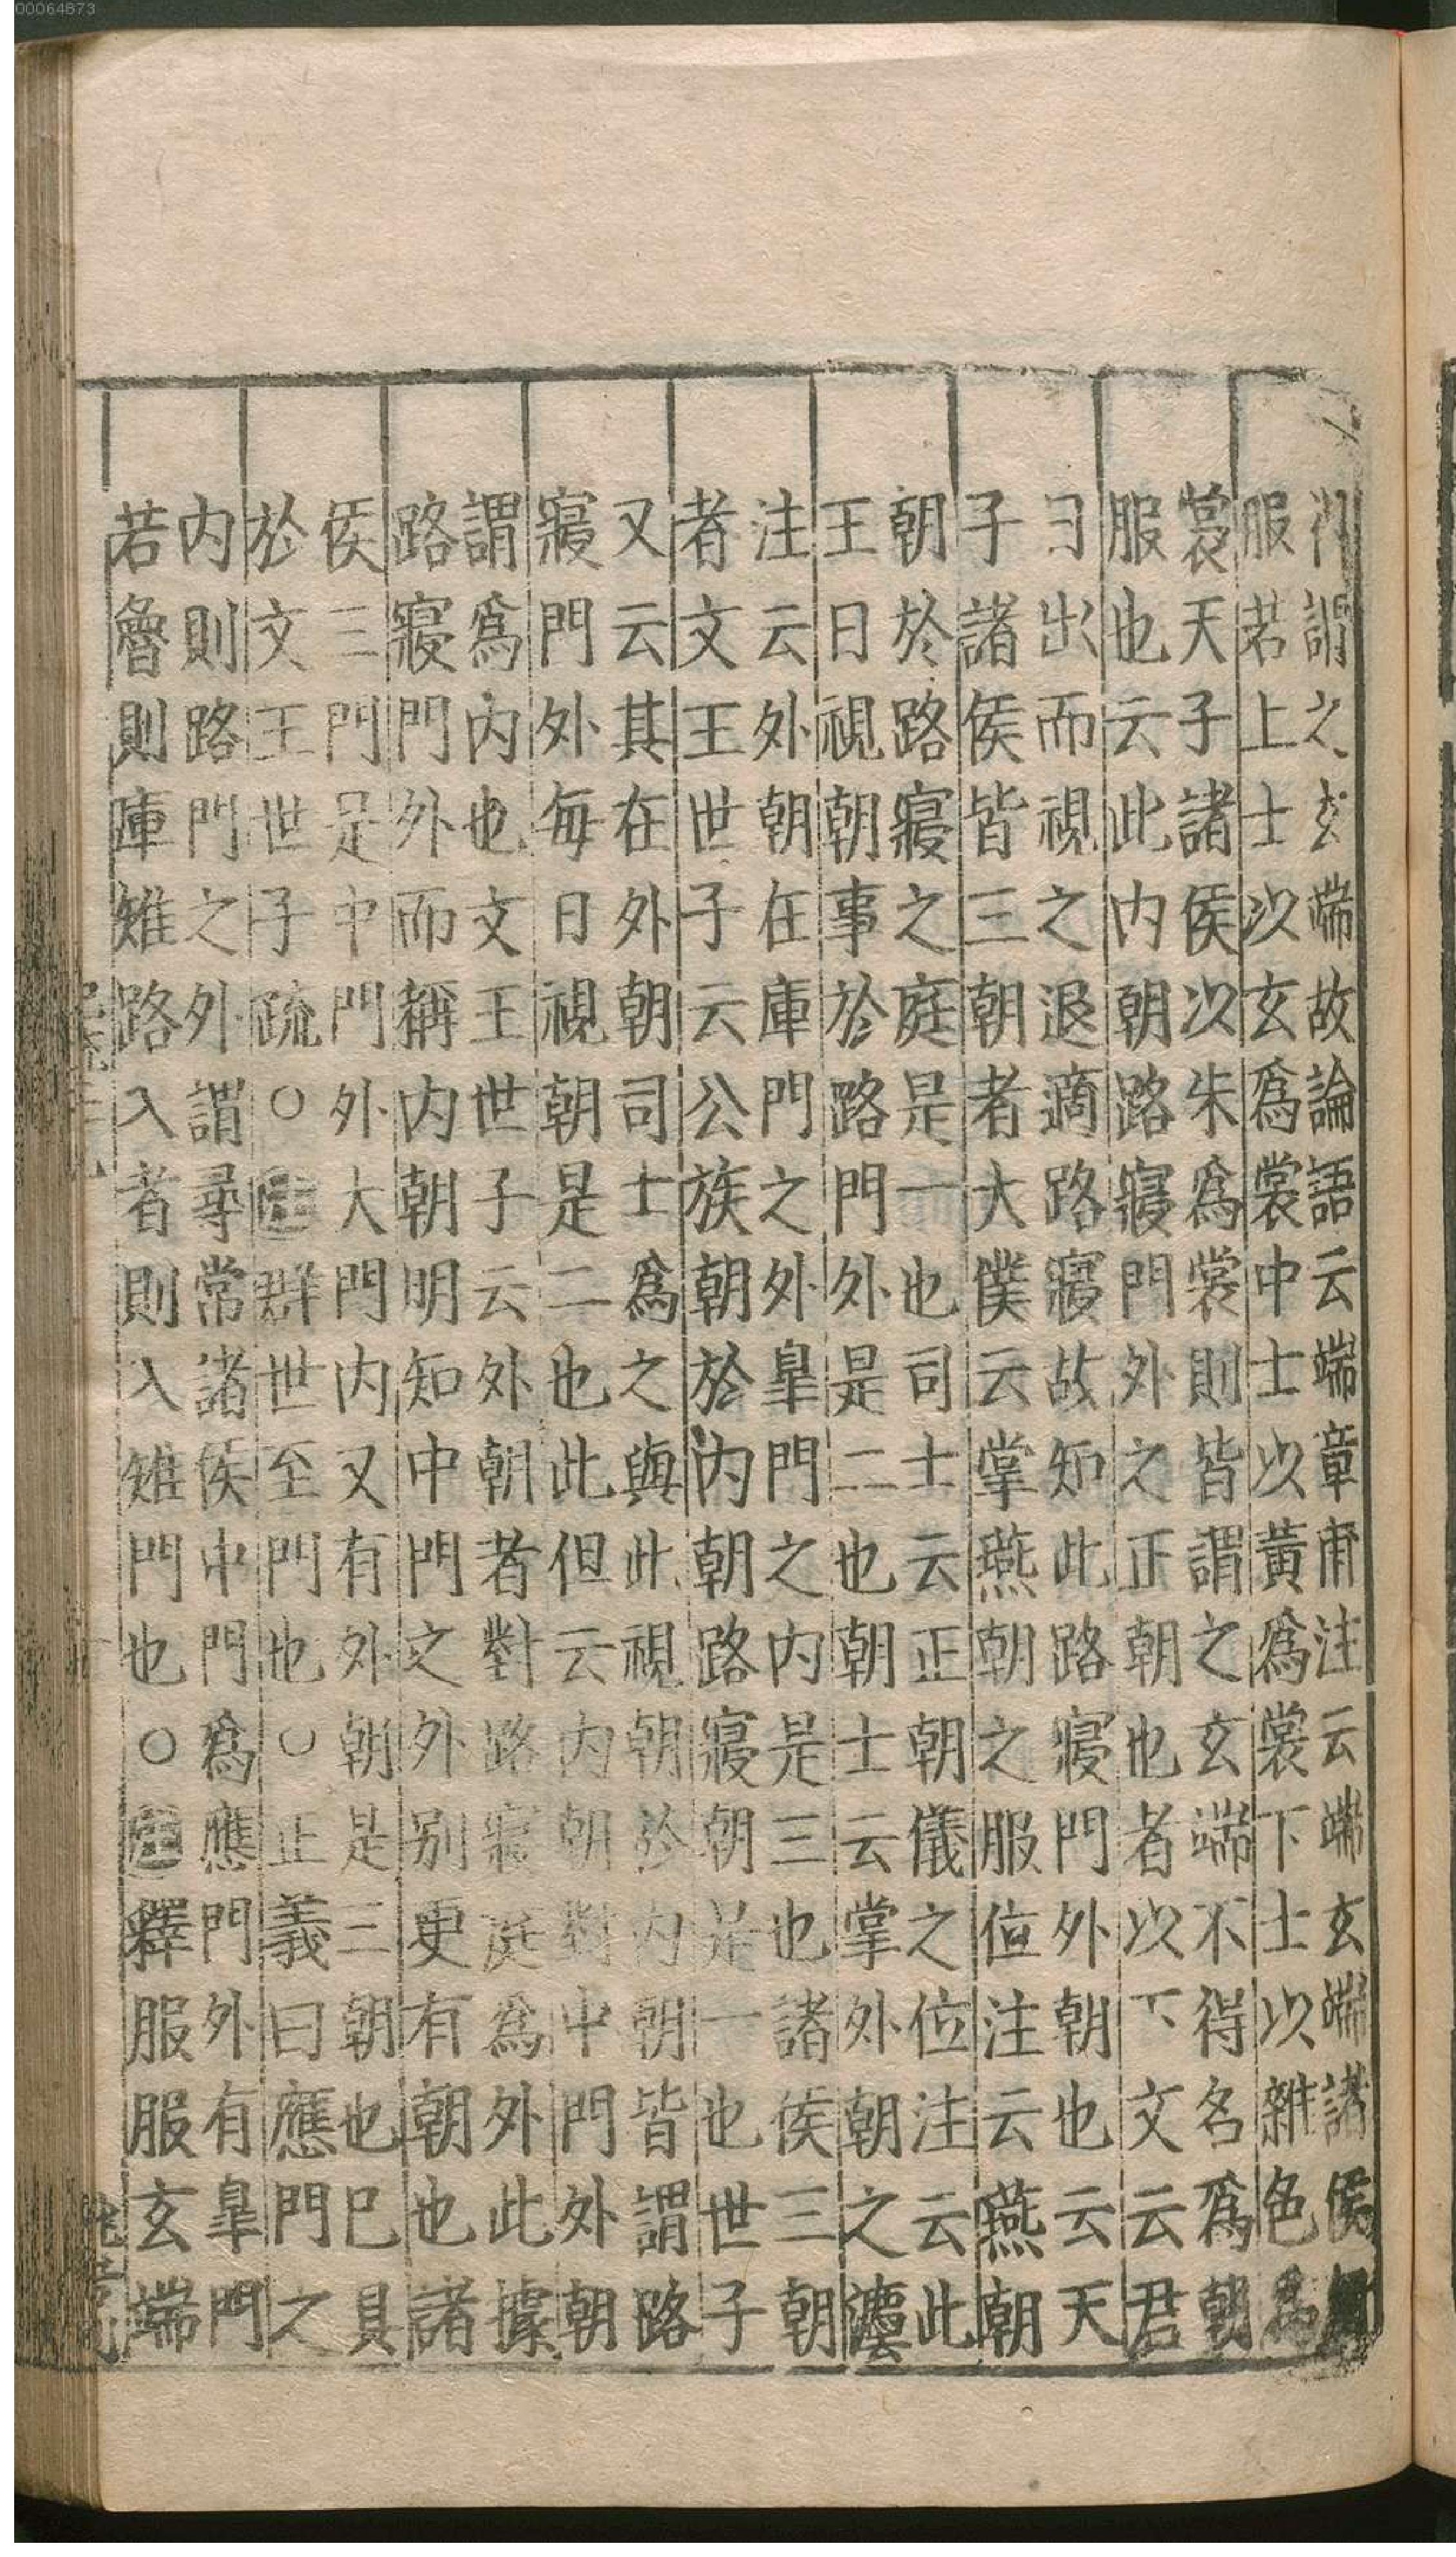 00064873
謂之玄端故論語云端章甫注云端玄端諸侯朝
服若上士以玄爲裳中士以黃爲裳下士以雜色爲
裳天子諸侯以朱爲裳則皆謂之玄端不得名爲朝
服也云此内朝路寢門外之正朝也者以下文云君
日出而視之退適路寢故知此路寢門外朝也云天
子諸侯皆三朝者大僕云掌燕朝之服位注云燕朝
朝於路寢之庭是一也司士云正朝儀之位注云此
王日視朝事於路門外是二也朝士云掌外朝之灋
注云外朝在庫門之外皐門之内是三也諸侯三朝
者文王世子云公族朝於内朝路寢朝是一也世子
又云其在外朝司士爲之與此視朝於内朝皆謂路
寢門外每日視朝是二也此但云内朝對中門外朝
謂爲内也文王世子云外朝者對路寢庭爲外此據
路寢門外而稱内朝明知中門之外别更有朝也諸
侯三門是中門外大門内又有外朝是三朝也巳具
於文王世子疏○注群世至門也○正義曰應門之
内則路門之外謂尋常諸侯中門爲應門外有皐門
若魯則庫雉路入者則入雉門也○注釋服服玄端